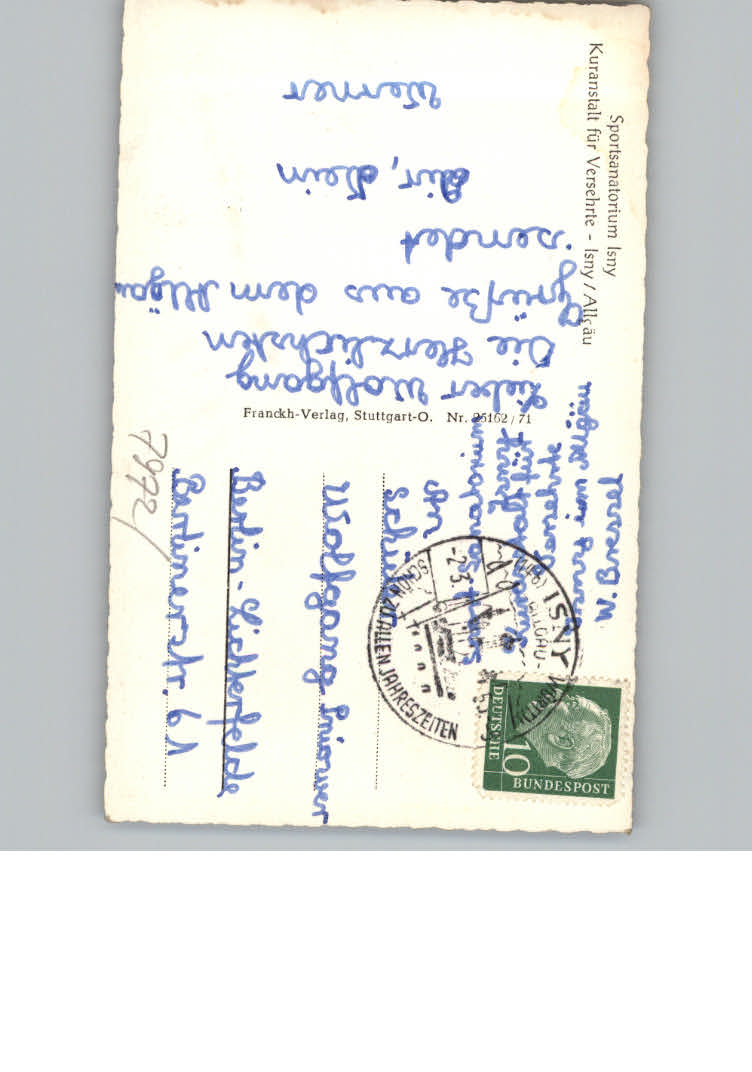 Sportsanatorium Isny
Kuranstalt für Versehrte - Isny / Allgäu
Lieber Wolfgang
Die Herzlichsten
Grüße aus dem Allgäu
sendet
dir, dein
Werner
Franckh-Verlag, Stuttgart-O. Nr. 25162 / 71
W. Brewer
Isny im Allgäu
Sportsanatorium
An
Schüler
Wolfgang
Berlin-Lichterfelde
Berlinerstr. 61
7972/
ISNY
ALLGÄU
WÜRTT.
SCHÖN ZU ALLEN JAHRESZEITEN
-2.3.
DEUTSCHE
BUNDESPOST
10